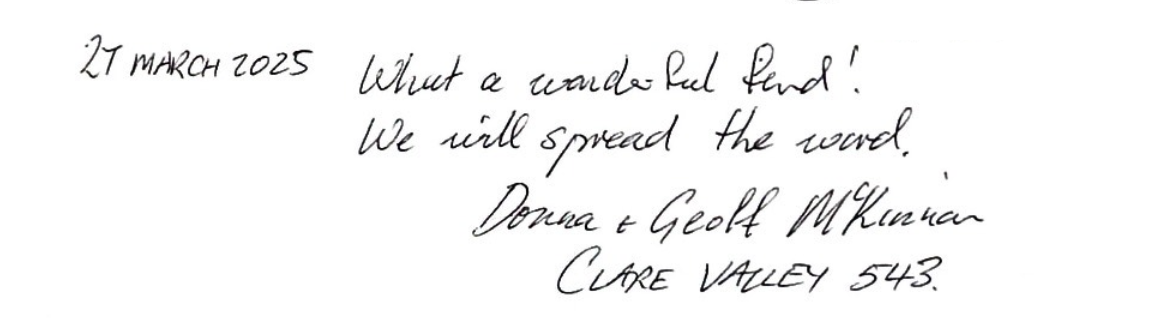 27 MARCH 2025 What a wonderful find!
We will spread the word.
Donna + Geoff McKinnan
CLARE VALLEY 543.